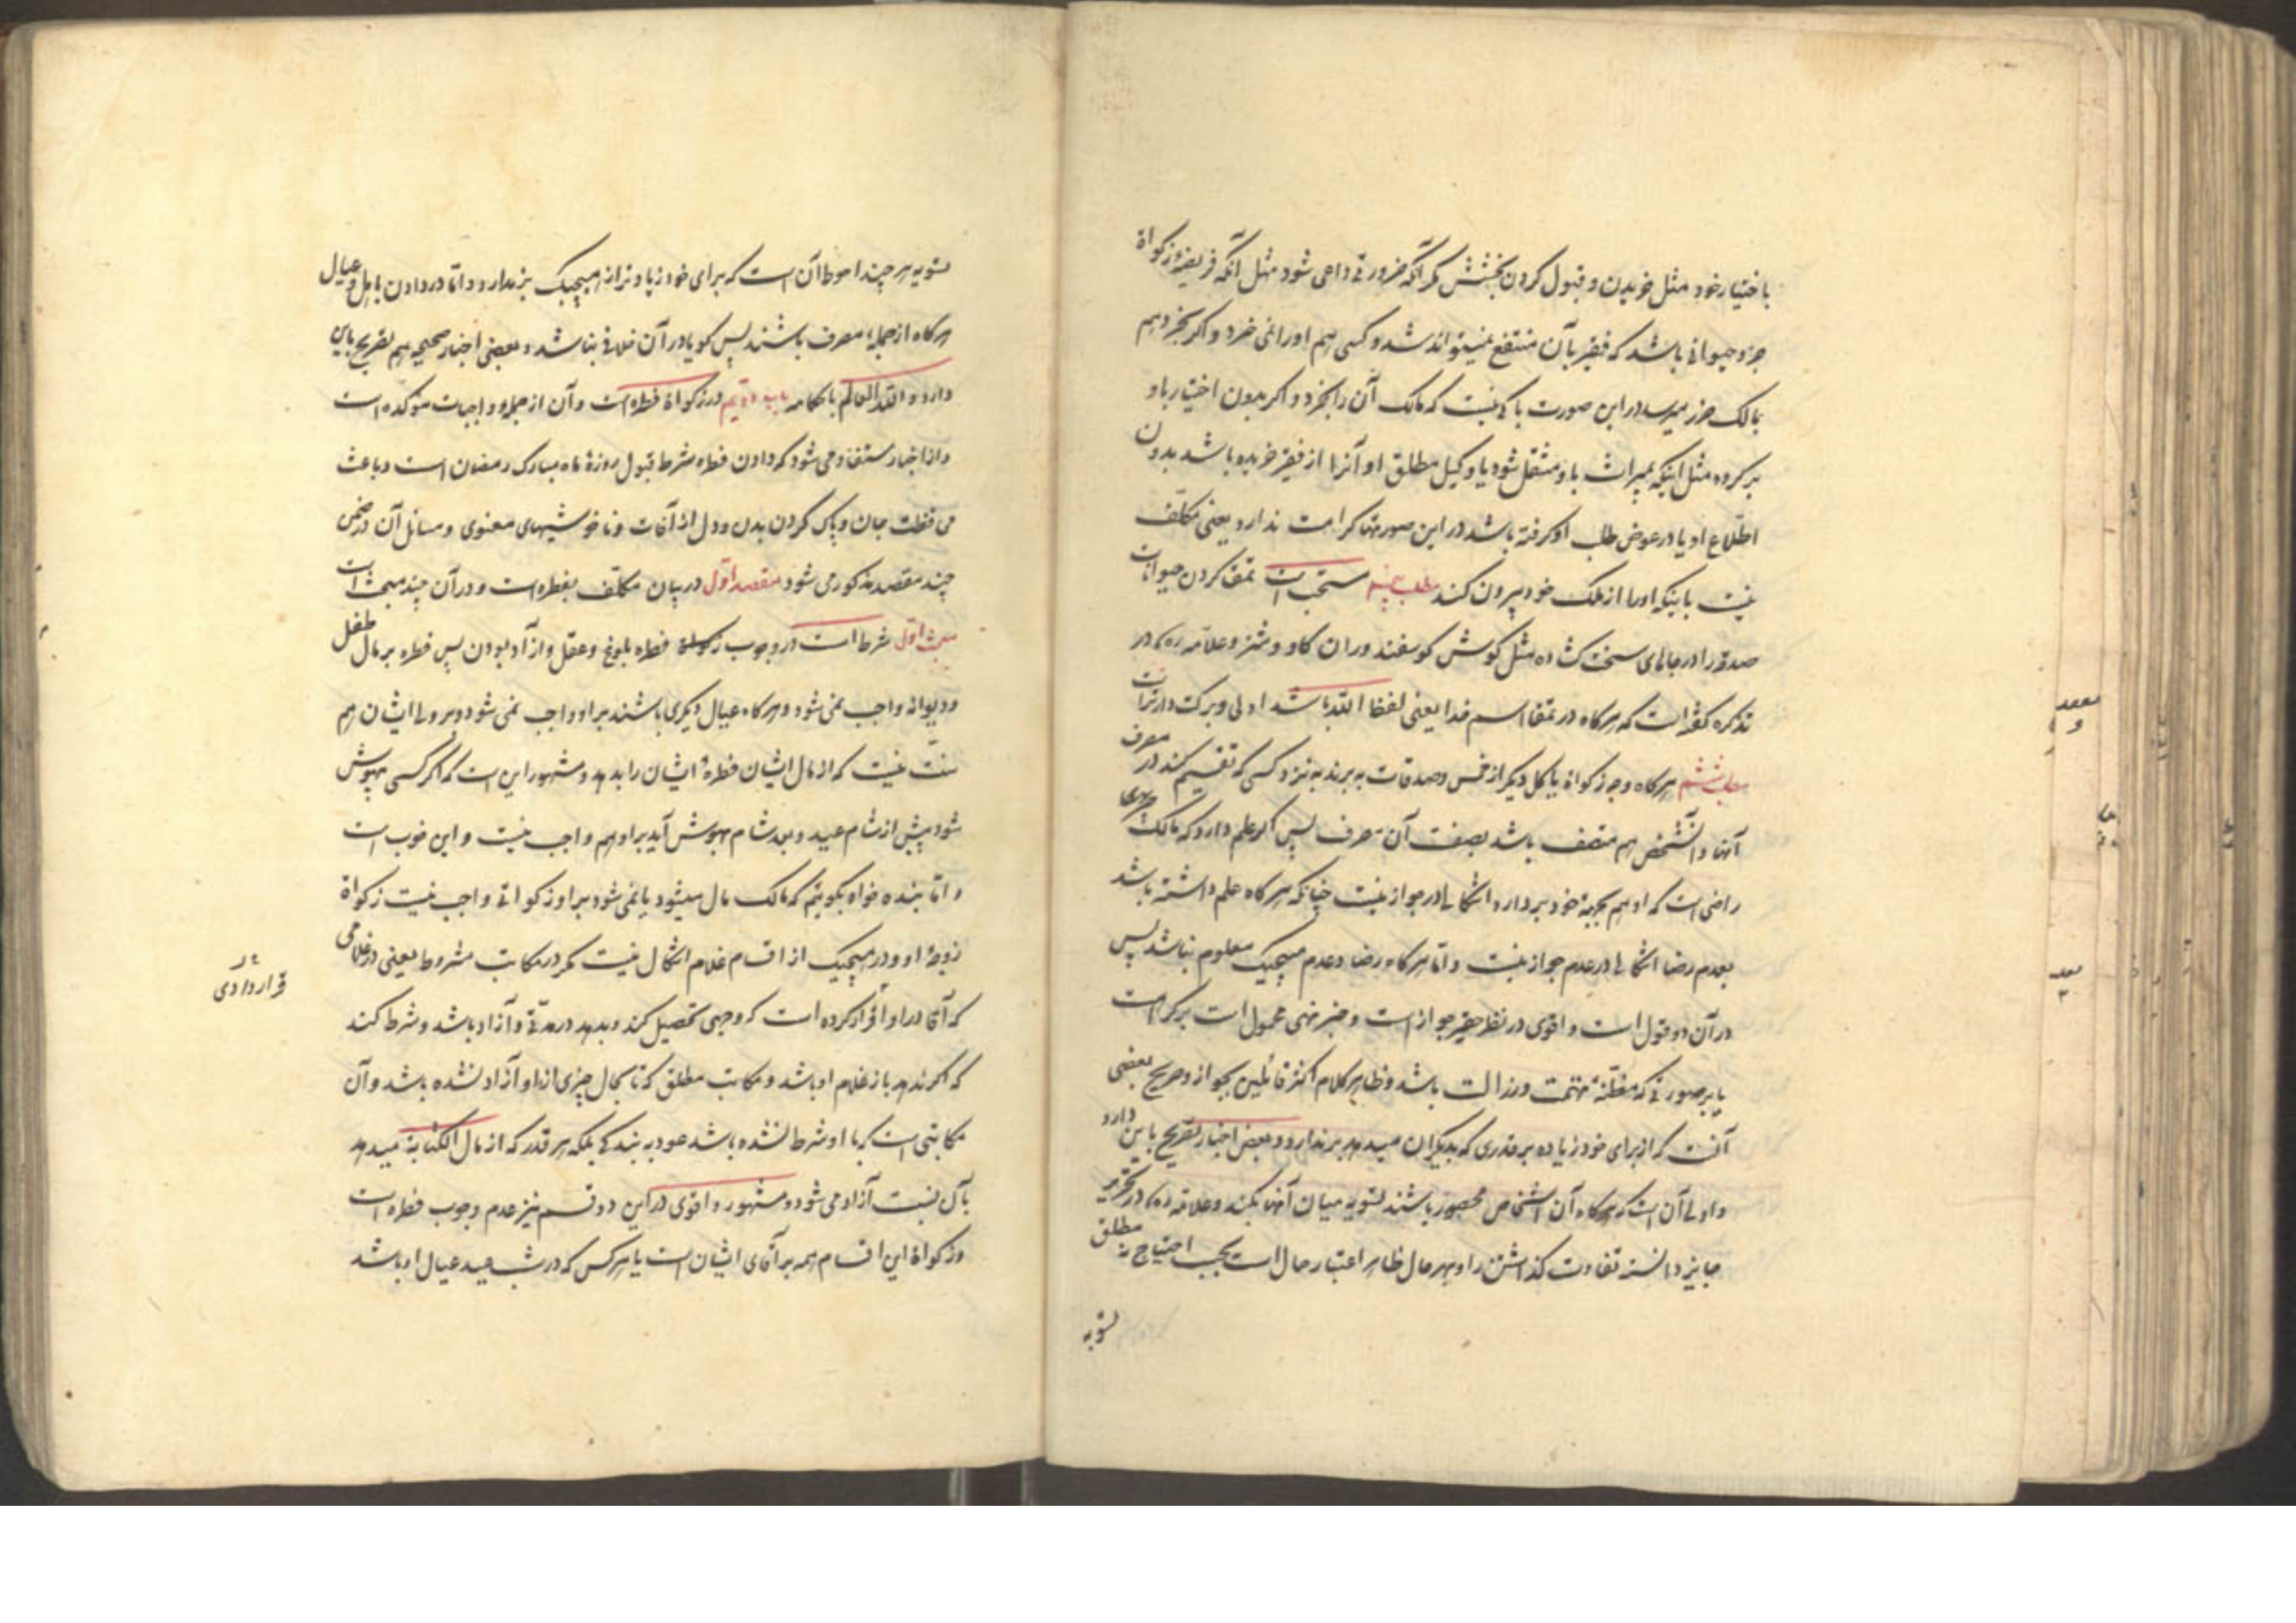 باختیار خود مثل خریدن و قبول کردن بخشش مگر آنکه ضرورتی داعی شود مثل آنکه فریضه زکواة
جزو حیوانی باشد که فقیر بآن منتفع نمیتواند شد و کسی هم او را نمی خرد و اگر بخرد هم
بمالک ضرر میرسد در این صورت باکی نیست که مالک آن را بخرد و اگر بدون اختیار باو
بر کردد مثل اینکه بمیراث باو منتقل شود یا وکیل مطلق او آنرا از فقیر خریده باشد بدون
اطلاع او یا در عوض طلب او کرفته باشد در این صورتها کراهت ندارد یعنی مکلف
نیست باینکه او را از ملک خود بیرون کند مطلب پنجم مستحب است داغ کردن حیوانات
صدقه را در جاهای سخت کشاده مثل کوش کوسفند و ران کاو و شتر و علامه ره در
تذکره کفته است که هرکاه در داغ اسم خدا یعنی لفظ الله باشد اولی و برکت دارتر است
مطلب ششم هرکاه وجه زکواة یا کل دیکر از خمس و صدقات به برند به نزد کسی که تقسیم کند در مصرف
آنها و آنشخص هم متصف باشد بصفت آن مصرف پس اکر علم دارد که مالک
راضی است که او هم بجهة خود بردارد اشکالی در جواز نیست چنانکه هرکاه علم داشته باشد
بعدم رضا اشکالی در عدم جواز نیست و اما هرکاه رضا و عدم هیچیک معلوم نباشد پس
در آن دو قول است و اقوی در نظر حقیر جواز است و خبر نهی محمول است بر کراهت
یا بر صورتی که مظنه تهمت و رذالت باشد و ظاهر کلام اکثر قائلین بجواز و صریح بعضی
آنست که از برای خود زیاده بر قدری که بدیکران میدهد بر ندارد و بعض اخبار تصریح باین دارد
و اولی آن است که هرکاه آن اشخاص محصور باشند تسویه میان آنها بکند و علامه ره در تحریر
جایز دانسته تفاوت کذاشتن را و بهر حال ظاهر اعتبار حال است بحسب احتیاج نه مطلق
تسویه
تسویه هر چند احوط آن است که برای خود زیادتر از هیچیک بر ندارد و اما در دادن باهل و عیال
هرکاه از جمله مصرف باشند پس کویا در آن خلافی نباشد و بعضی اخبار صحیح هم تصریح باین
دارد و الله العالم باحکامه باب دویم در زکواة فطره است و آن از جمله واجبات موکده است
و از اخبار مستفاد می شود که دادن فطره شرط قبول روزهٔ ماه مبارک رمضان است و باعث
محافظت جان و پاک کردن بدن و دل از آفات و ناخوشیهای معنوی و مسائل آن در ضمن
چند مقصد مذکور می شود مقصد اول در بیان مکلف بفطره است و در آن چند مبحث است
مبحث اول شرط است در وجوب زکواة فطره بلوغ و عقل و آزاد بودن پس فطره بر مال طفل
و دیوانه واجب نمی شود و هرکاه عیال دیکری باشند بر او واجب نمی شود و بر ولی ایشان هم
سنت نیست که از مال ایشان فطرهٔ ایشان را بدهد و مشهور این است که اکر کسی بیهوش
شود پیش از شام عید و بعد شام بهوش آید بر او هم واجب نیست و این خوب است
و اما بنده خواه بکوئیم که مالک مال میشود یا نمی شود بر او زکواتی واجب نیست زکواة
زوجهٔ او و در هیچیک از اقسام غلام اشکال نیست مکر در مکاتب مشروط یعنی در غلامی
که آقا در او قرار کرده است که وجهی تحصیل کند و بدهد در مدتی و آزاد باشد و شرط کند
که اکر ندهد باز غلام او باشد و مکاتب مطلق که تا بحال چیزی از او آزاد نشده باشد و آن
مکاتبی است که با او شرط نشده باشد عود به بندکی بلکه هر قدر که از مال الکتابه میدهد
بآن نسبت آزاد می شود و مشهور و اقوی در این دو قسم نیز عدم وجوب فطره است
و زکواة این اقسام همه بر آقای ایشان است یا هر کس که در شب عید عیال او باشد
قراردادی